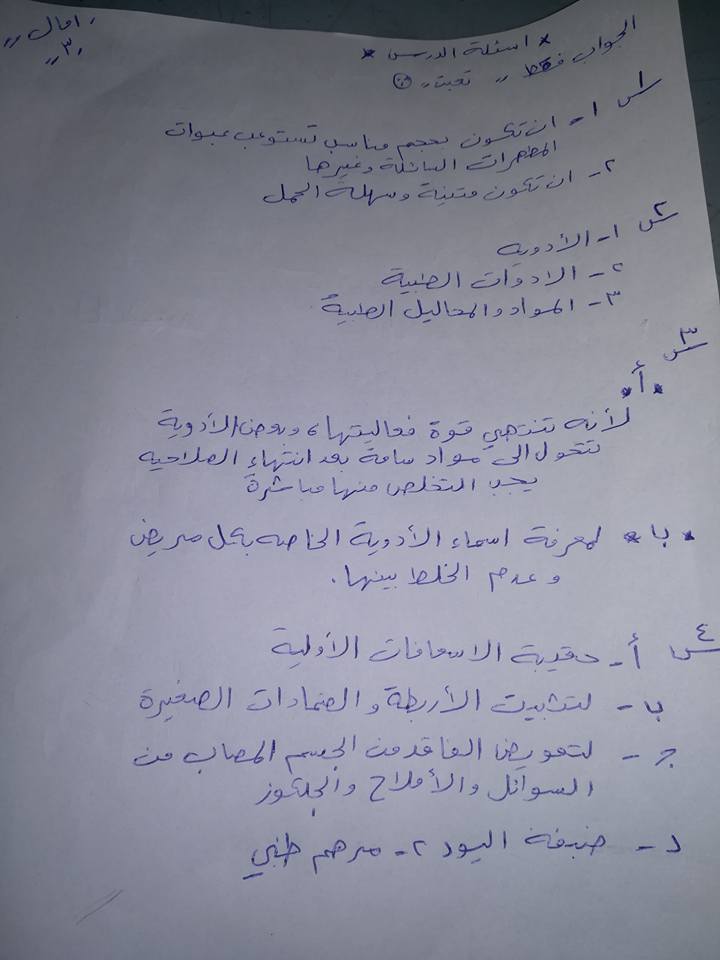 ,, امال ,,
,, ٣ ,,
* اسئلة الدرس *
الجواب فقط ,, تعبت ,, ☹
س١ ١- ان تكون بحجم مناسب تستوعب عبوات
المطهرات السائلة وغيرها
٢- ان تكون متينة وسهلة الحمل
س٢ ١- الأدوية
٢- الادوات الطبية
٣- المواد والمحاليل الطبية
س٣
* أ *
لأنه تنتهي قوة فعاليتها، وبعض الأدوية
تتحول الى مواد سامة بعد انتهاء الصلاحيه
يجب التخلص منها مباشرة
* ب * لمعرفة اسماء الأدوية الخاصه بكل مريض
وعدم الخلط بينها.
س٤ أ- حقيبة الاسعافات الأولية
ب- لتثبيت الأربطة والضمادات الصغيرة
ج- لتعويض الفاقد من الجسم المصاب من
السوائل والأملاح والجلكوز
د- صبغة اليود ٢- مرهم طبي